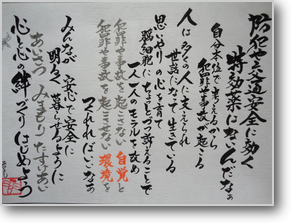 防犯や交通安全に効く
特効薬はないんだなぁ
自分本位で考えるから
犯罪や事故が起こる
人は多くの人に支えられ
世話になって生きている
思いやりの心を育て
脳細胞にちょっとづつ訴えることで
一人一人のモラルを高め
犯罪や事故を起こさない 自覚と
犯罪や事故を起こさせない 環境を
つくれればいいなぁ
みんなが 安心で安全に
明るく暮らせるように
あいさつ みまもり たすけあい
心と心の絆づくりはじめよう